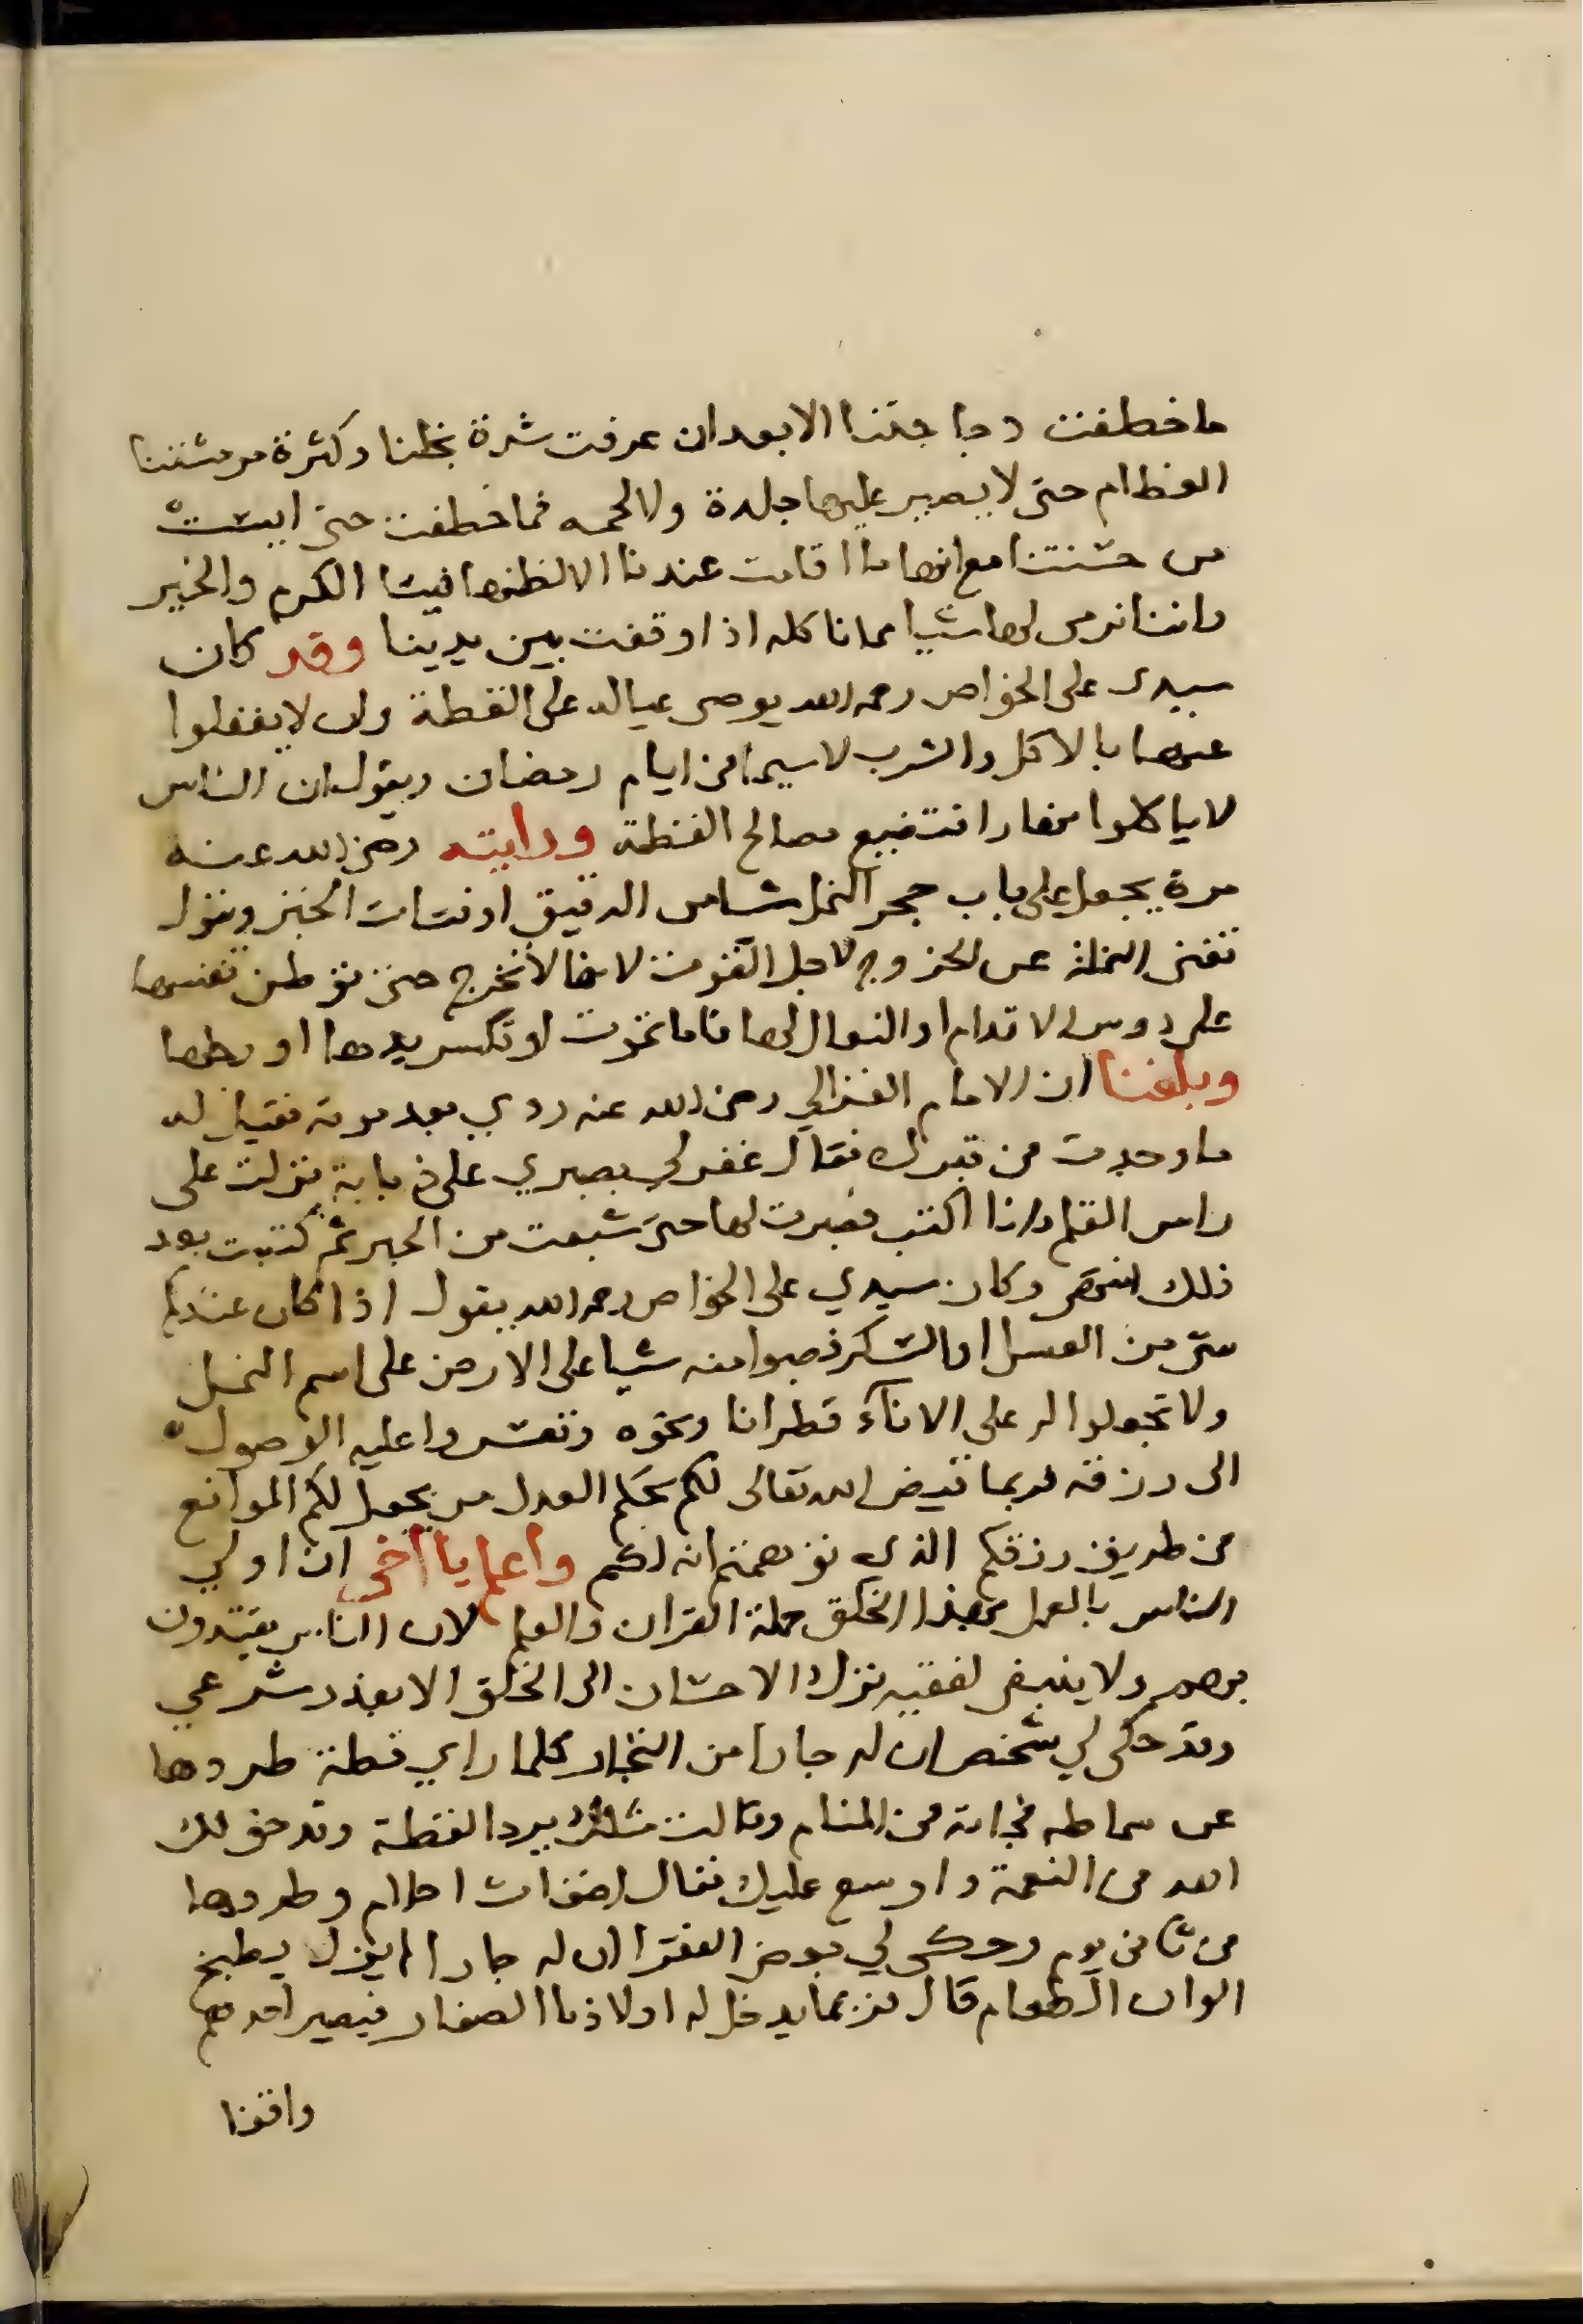 ما خطفت دجاجتنا الا بعد ان عرفت شدة بخلنا وكثرة مرمشتنا
العظام حتى لا يصير عليها جلدة ولا لحمه فما خطفت حتى ايست
من حسنتنا مع انها ما اقامت عندنا الا لظنها فينا الكرم والخير
واننا نرمى لها شيا مما ناكله اذا وقفت بين يدينا وقد كان
سيدى على الخواص رحمه الله يوصى عياله على القطة وان لا يغفلوا
عنها بالاكل والشرب لا سيما فى ايام رمضان ويقول ان الناس
لا ياكلوا نهارا فتضيع مصالح القطة ورايته رضى الله عنه
مرة يجعل على باب جحر النمل شيا من الدقيق او فتات الخبز ويقول
نغنى النملة عن الخروج لاجل القوت لانها لا تخرج حتى توطن نفسها
على دوس الاقدام او النعال لها فاما تموت او تكسر يدها او رجلها
وبلغنا ان الامام الغزالي رضى الله عنه روي بعد موته فقيل له
ما وجدت فى قبرك فقال غفر لي بصبري على ذبابة نزلت على
راس القلم وانا اكتب فصبرت لها حتى شبعت من الحبر ثم كتبت بعد
ذلك انتهى وكان سيدي على الخواص رحمه الله يقول اذا كان عندكم
شى من العسل او السكر فصبوا منه شيا على الارض على اسم النمل
ولا تجعلوا له على الاناء قطرانا ونحوه وتعسروا عليه الوصول
الى رزقه فربما قيض الله تعالى لكم بحكم العدل من يجعل لكم الموانع
فى طريق رزقكم الذي توهمتم انه لكم واعلم يا اخى ان اولي
الناس بالعمل بهذا الخلق حملة القران والعلم لان الناس يقتدون
بهم ولا ينبغى لفقيه ترك الاحسان الى الخلق الا بعذر شرعي
وقد حكى لي شخص ان له جارا من التجار كلما راي قطة طردها
عن سماطه فجاته فى المنام وقالت مثلك يرد القطة وقد خولك
الله فى النعمة واوسع عليك فقال اضغاث احلام وطردها
فى ثانى يوم وحكى لي بعض الفقرا ان له جارا لم يزل يطبخ
الوان الطعام قال فربما يدخل له اولادنا الصغار فيصير احدهم
واقفا